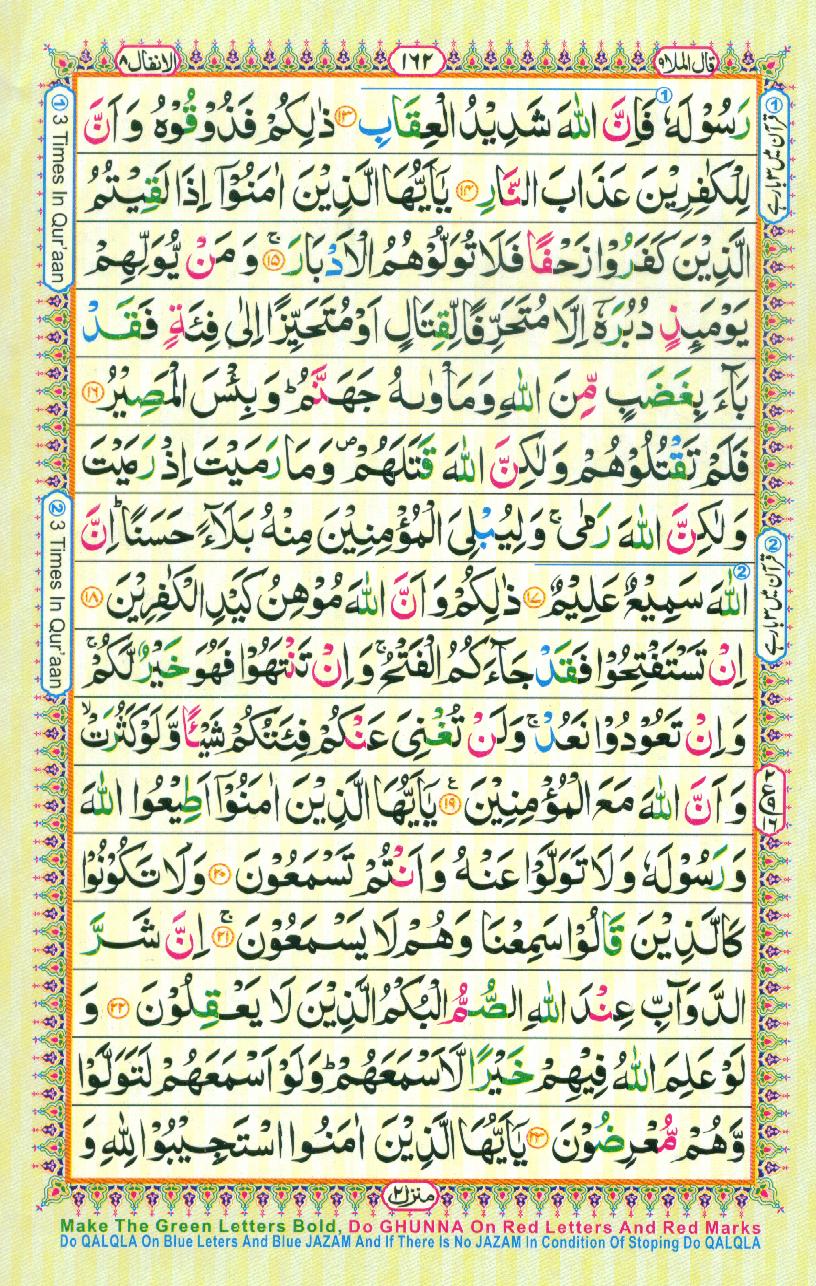 قال الملا ۹
۱۶۲
الانفال ۸
رَسُوْلَهٗ فَاِنَّ اللّٰهَ شَدِيْدُ الْعِقَابِ ﴿۱۳﴾ ذٰلِكُمْ فَذُوْقُوْهُ وَ اَنَّ
لِلْكٰفِرِيْنَ عَذَابَ النَّارِ ﴿۱۴﴾ يٰۤاَيُّهَا الَّذِيْنَ اٰمَنُوْۤا اِذَا لَقِيْتُمُ
الَّذِيْنَ كَفَرُوْا زَحْفًا فَلَا تُوَلُّوْهُمُ الْاَدْبَارَ ﴿۱۵﴾ۚ وَ مَنْ يُّوَلِّهِمْ
يَوْمَىِٕذٍ دُبُرَهٗۤ اِلَّا مُتَحَرِّفًا لِّقِتَالٍ اَوْ مُتَحَيِّزًا اِلٰى فِئَةٍ فَقَدْ
بَآءَ بِغَضَبٍ مِّنَ اللّٰهِ وَ مَاْوٰىهُ جَهَنَّمُ ؕ وَ بِئْسَ الْمَصِيْرُ ﴿۱۶﴾
فَلَمْ تَقْتُلُوْهُمْ وَ لٰكِنَّ اللّٰهَ قَتَلَهُمْ ۪ وَ مَا رَمَيْتَ اِذْ رَمَيْتَ
وَ لٰكِنَّ اللّٰهَ رَمٰى ۚ وَ لِيُبْلِيَ الْمُؤْمِنِيْنَ مِنْهُ بَلَآءً حَسَنًا ؕ اِنَّ
اللّٰهَ سَمِيْعٌ عَلِيْمٌ ﴿۱۷﴾ ذٰلِكُمْ وَ اَنَّ اللّٰهَ مُوْهِنُ كَيْدِ الْكٰفِرِيْنَ ﴿۱۸﴾
اِنْ تَسْتَفْتِحُوْا فَقَدْ جَآءَكُمُ الْفَتْحُ ۚ وَ اِنْ تَنْتَهُوْا فَهُوَ خَيْرٌ لَّكُمْ ۚ
وَ اِنْ تَعُوْدُوْا نَعُدْ ۚ وَ لَنْ تُغْنِيَ عَنْكُمْ فِئَتُكُمْ شَيْـًٔا وَّ لَوْ كَثُرَتْ ۙ
وَ اَنَّ اللّٰهَ مَعَ الْمُؤْمِنِيْنَ ﴿۱۹﴾ يٰۤاَيُّهَا الَّذِيْنَ اٰمَنُوْۤا اَطِيْعُوا اللّٰهَ
وَ رَسُوْلَهٗ وَ لَا تَوَلَّوْا عَنْهُ وَ اَنْتُمْ تَسْمَعُوْنَ ﴿۲۰﴾ وَ لَا تَكُوْنُوْا
كَالَّذِيْنَ قَالُوْا سَمِعْنَا وَ هُمْ لَا يَسْمَعُوْنَ ﴿۲۱﴾ۚ اِنَّ شَرَّ
الدَّوَآبِّ عِنْدَ اللّٰهِ الصُّمُّ الْبُكْمُ الَّذِيْنَ لَا يَعْقِلُوْنَ ﴿۲۲﴾ وَ
لَوْ عَلِمَ اللّٰهُ فِيْهِمْ خَيْرًا لَّاَسْمَعَهُمْ ؕ وَ لَوْ اَسْمَعَهُمْ لَتَوَلَّوْا
وَّ هُمْ مُّعْرِضُوْنَ ﴿۲۳﴾ يٰۤاَيُّهَا الَّذِيْنَ اٰمَنُوا اسْتَجِيْبُوْا لِلّٰهِ وَ
① قرآن میں ۳ بار ہے
② قرآن میں ۳ بار ہے
① 3 Times In Qur'aan
② 3 Times In Qur'aan
منزل ۲
Make The Green Letters Bold, Do GHUNNA On Red Letters And Red Marks
Do QALQLA On Blue Leters And Blue JAZAM And If There Is No JAZAM In Condition Of Stoping Do QALQLA